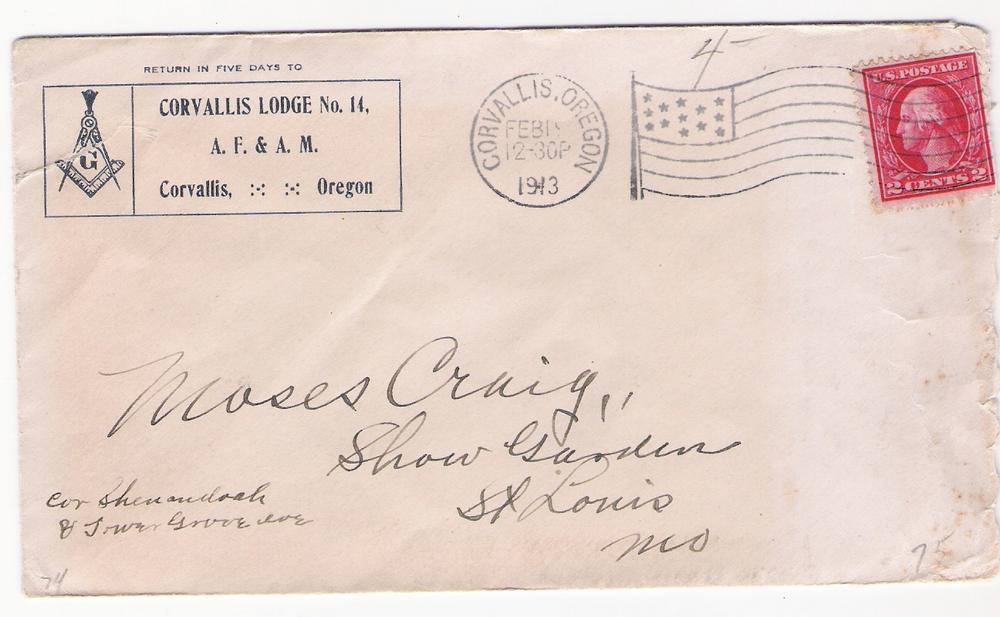 RETURN IN FIVE DAYS TO
G
CORVALLIS LODGE No. 14,
A. F. & A. M.
Corvallis, :-: :-: Oregon
CORVALLIS, OREGON
FEB
12-30P
1913
4-
U.S. POSTAGE
2 CENTS 2
Moses Craig,,
Show Garden
St Louis
Mo
Cor Shenandoah
& Tower Grove Ave
74
75